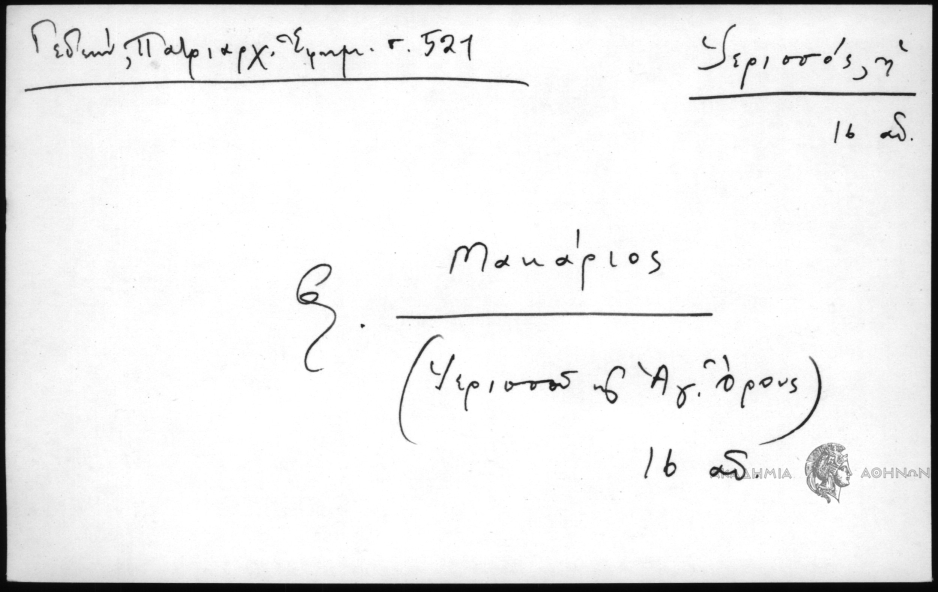 Γεδεών, Πατριαρχ. Ἐφημ. σ. 521
Ἱερισσός, ἡ
16 αἰ.
Μακάριος
(Ἱερισσοῦ καὶ Ἁγ. Ὄρους)
16 αἰ.
ΑΚΑΔΗΜΙΑ ΑΘΗΝΩΝ